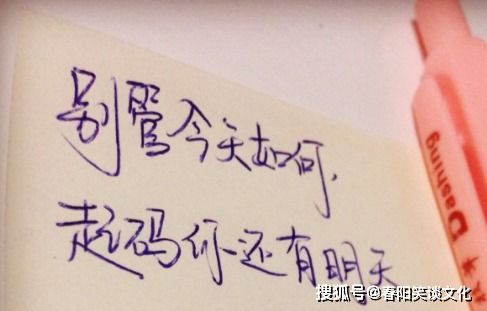 别管今天如何，
起码你还有明天
Dashing
搜狐号@春阳笑谈文化